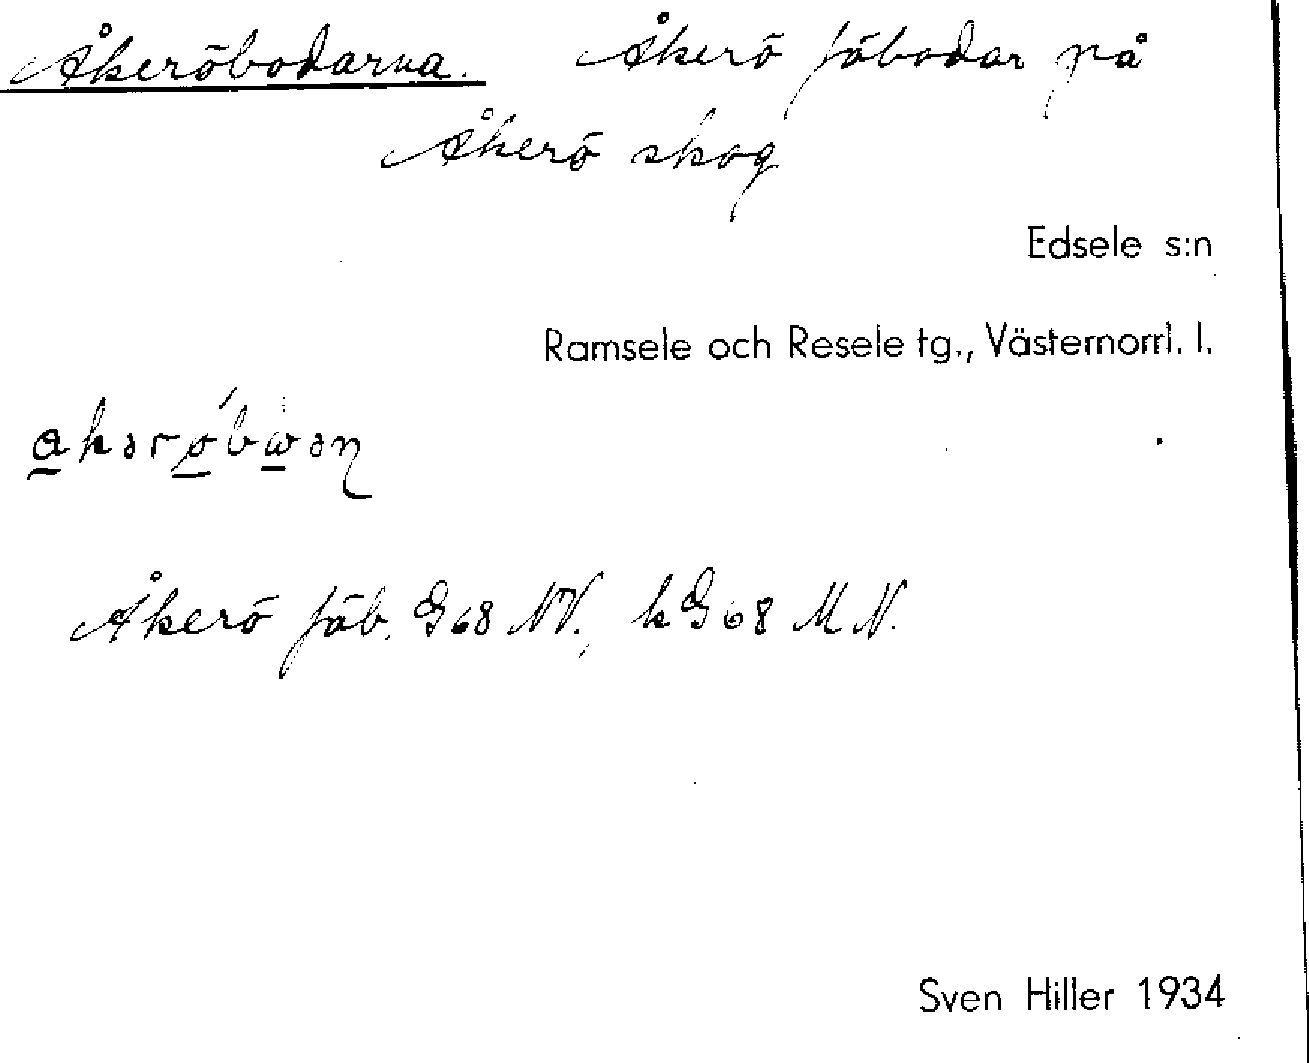 Åkeröbodarna. Åkerö fäbodar på
Åkerö skog
Edsele s:n
Ramsele och Resele tg., Västernorrl. l.
Åkerö fäb. G68 NV., kG68 M N.
Sven Hiller 1934